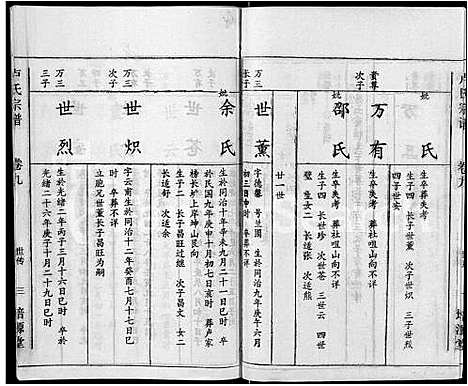 卢氏宗谱 卷九
妣 氏
生卒失考
生子四 长子世董 次子世炽 三子世烈
四子世安
贵尊
次子
万有
生卒失考 葬社咀山向不详
妣
邵氏
生卒失考 葬社咀山向不详
生子四 长世 次世苍 三世云 四世
璧 生女二 长适张 次适熊
廿一世
万三
长子
世董
字德馨 号兰圃 生於同治九年庚午六月
初三日 时 卒葬不详
妣
余氏
生於同治十年辛未九月二十一日巳时 卒
於民国九年庚申十月初七日亥时 葬卢家
榜长垅山子岗坤山艮向
生子二 长子昌旺过继 次子昌文 女二
长适 次适
万三
次子
世炽
字云甫 生於同治十二年癸酉七月十七日巳
时 卒葬不详
立胞兄世董长子昌旺为嗣
万三
三子
世烈
生於光绪二年丙子三月十六日巳时 卒於
光绪二十六年庚子十月二十九日巳时
卢氏宗谱 卷九 世传 三 培源堂